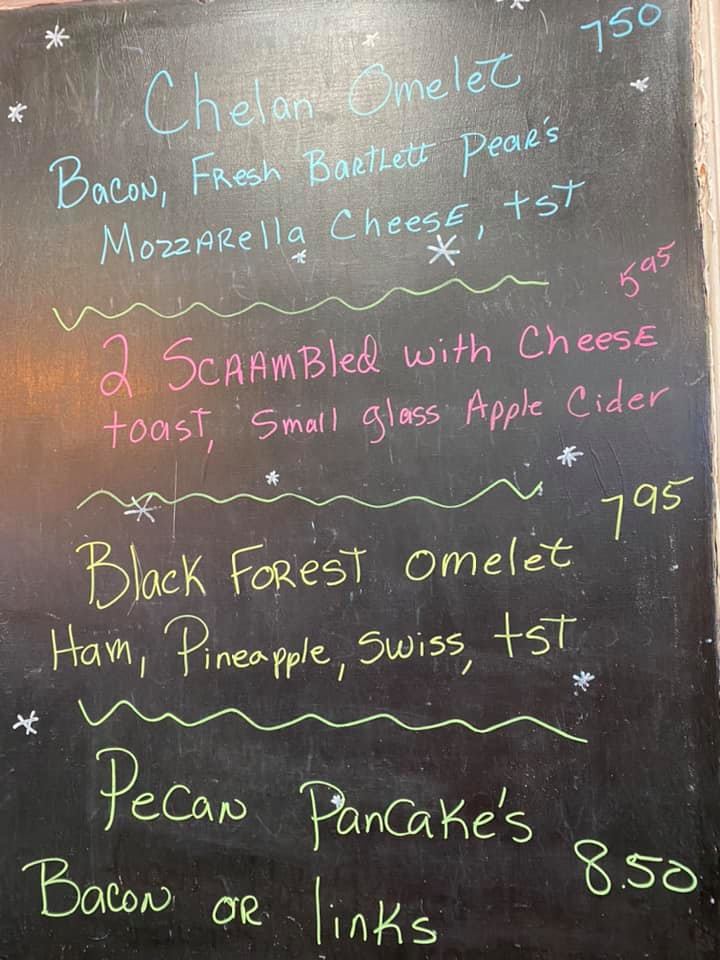 750
Chelan Omelet
Bacon, Fresh Bartlett Pear's
Mozzarella Cheese, tst
595
2 Scaambled with Cheese
toast, Small glass Apple Cider
795
Black Forest omelet
Ham, Pineapple, Swiss, tst
Pecan Pancake's
8.50
Bacon or links